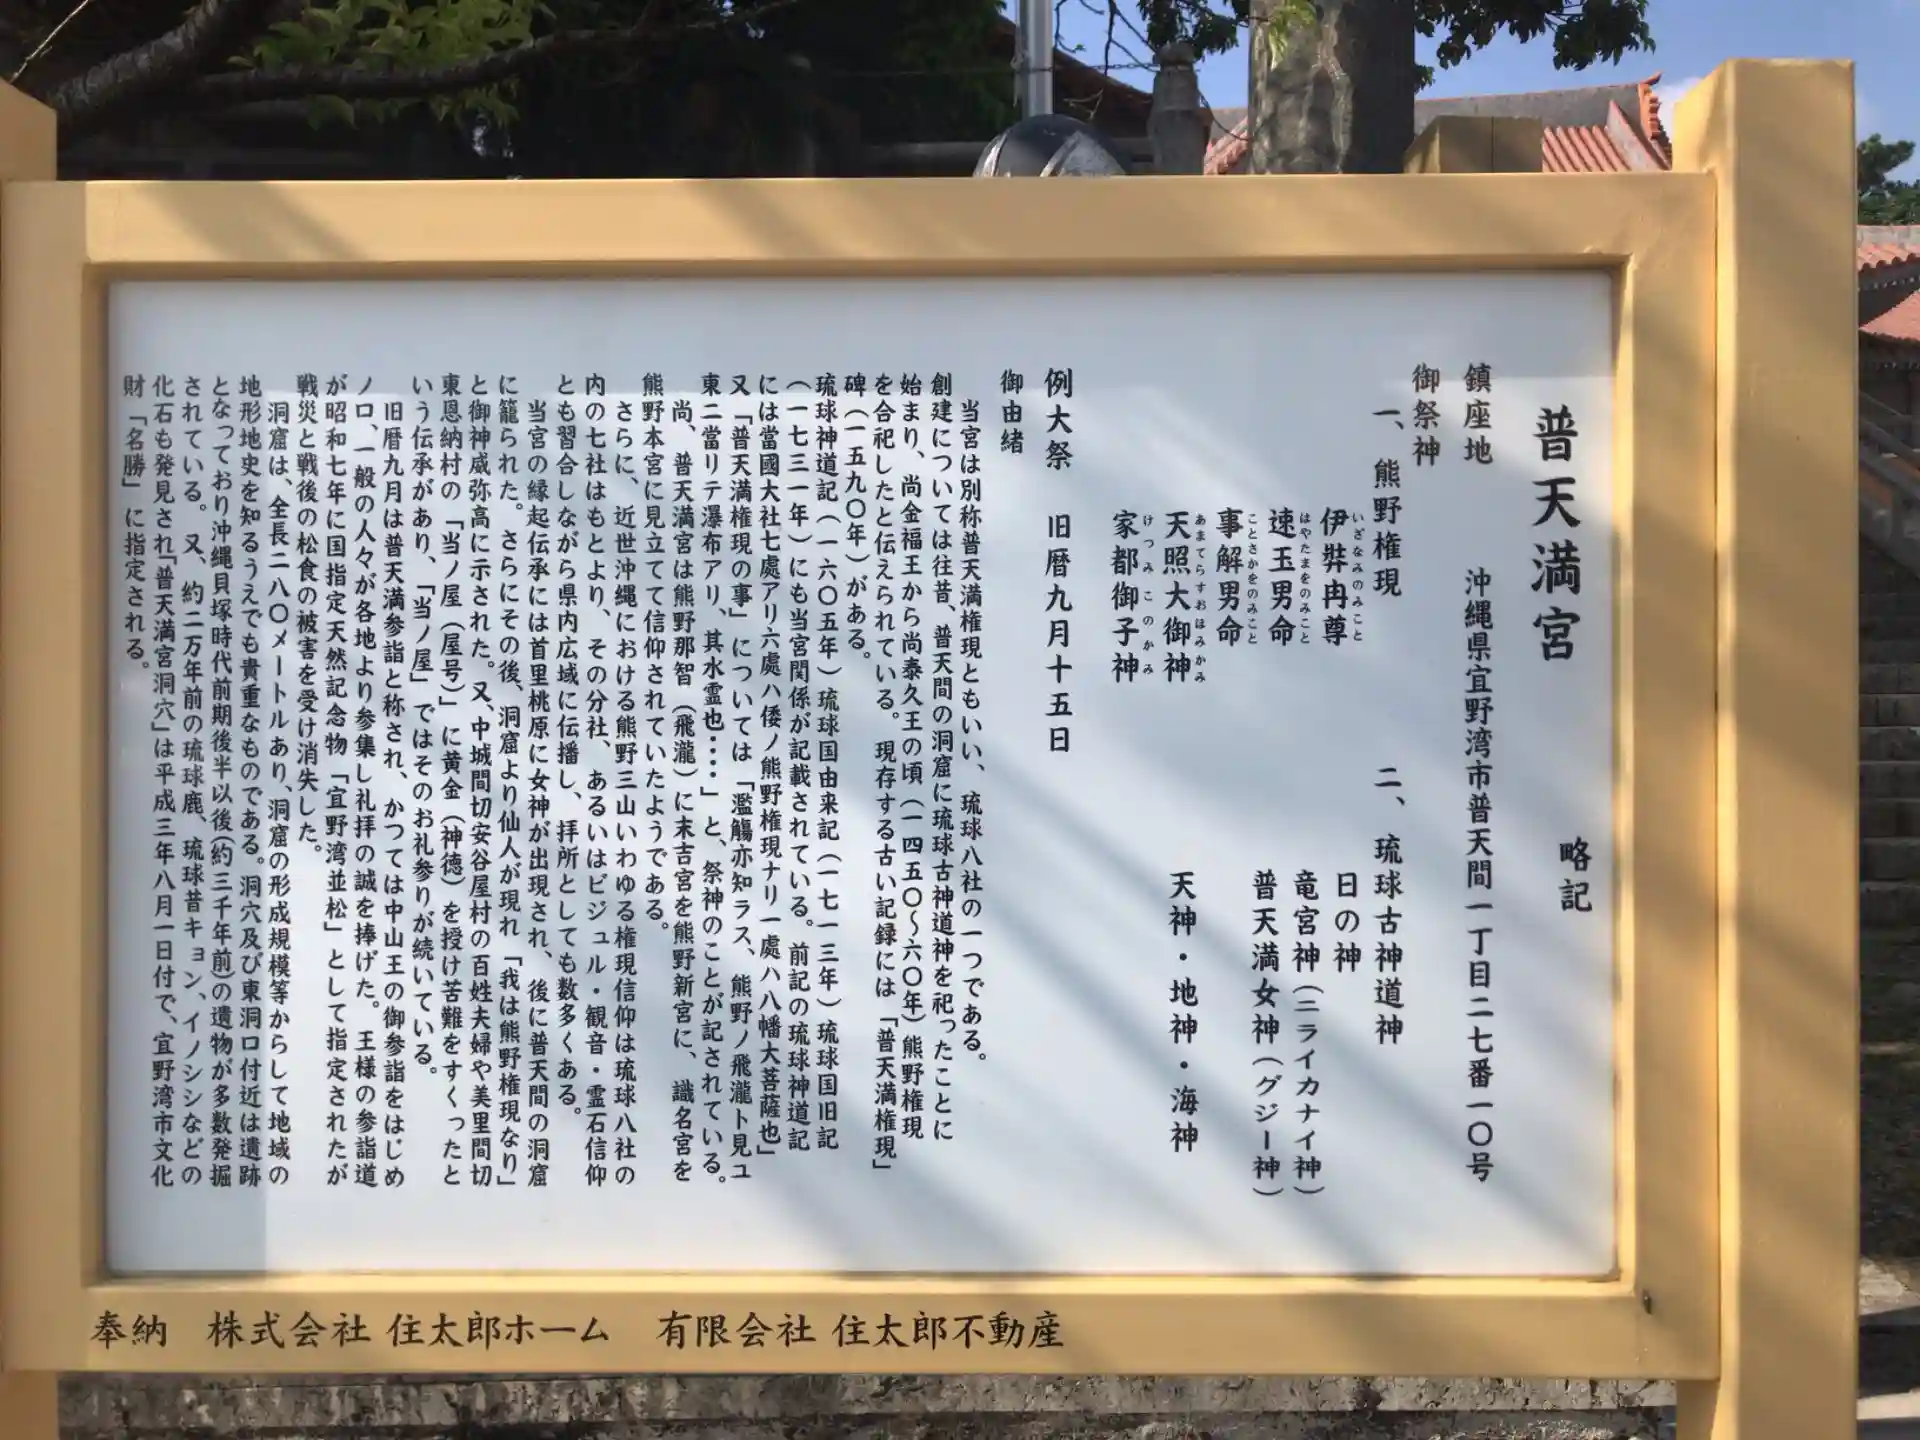 普天満宮 略記
鎮座地 沖縄県宜野湾市普天間一丁目二七番一〇号
御祭神
一、熊野権現 二、琉球古神道神
伊弉冉尊 日の神
いざなみのみこと
速玉男命 竜宮神(ニライカナイ神)
はやたまをのみこと
事解男命 普天満女神(グジー神)
ことさかをのみこと
天照大御神 天神・地神・海神
あまてらすおほみかみ
家都御子神
けつみこのかみ
例大祭 旧暦九月十五日
御由緒
当宮は別称普天満権現ともいい、琉球八社の一つである。
創建については往昔、普天間の洞窟に琉球古神道神を祀ったことに
始まり、尚金福王から尚泰久王の頃(一四五〇〜六〇年)熊野権現
を合祀したと伝えられている。現存する古い記録には「普天満権現」
碑(一五九〇年)がある。
琉球神道記(一六〇五年)琉球国由来記(一七一三年)琉球国旧記
(一七三一年)にも当宮関係が記載されている。前記の琉球神道記
には當國大社七處アリ六處ハ倭ノ熊野権現ナリ一處ハ八幡大菩薩也」
又「普天満権現の事」については「濫觴亦知ラス、熊野ノ飛瀧ト見ユ
東ニ當リテ瀑布アリ、其水霊也・・・・」と、祭神のことが記されている。
尚、普天満宮は熊野那智(飛瀧)に末吉宮を熊野新宮に、識名宮を
熊野本宮に見立てて信仰されていたようである。
さらに、近世沖縄における熊野三山いわゆる権現信仰は琉球八社の
内の七社はもとより、その分社、あるいはビジュル・観音・霊石信仰
とも習合しながら県内広域に伝播し、拝所としても数多くある。
当宮の縁起伝承には首里桃原に女神が出現され、後に普天間の洞窟
に籠られた。さらにその後、洞窟より仙人が現れ「我は熊野権現なり」
と御神威弥高に示された。又、中城間切安谷屋村の百姓夫婦や美里間切
東恩納村の「当ノ屋(屋号)」に黄金(神徳)を授け苦難をすくったと
いう伝承があり、「当ノ屋」ではそのお礼参りが続いている。
旧暦九月は普天満参詣と称され、かつては中山王の御参詣をはじめ
ノロ、一般の人々が各地より参集し礼拝の誠を捧げた。王様の参詣道
が昭和七年に国指定天然記念物「宜野湾並松」として指定されたが
戦災と戦後の松食の被害を受け消失した。
洞窟は、全長二八〇メートルあり、洞窟の形成規模等からして地域の
地形地史を知るうえでも貴重なものである。洞穴及び東洞口付近は遺跡
となっており沖縄貝塚時代前期後半以後(約三千年前)の遺物が多数発掘
されている。又、約二万年前の琉球鹿、琉球昔キョン、イノシシなどの
化石も発見され「普天満宮洞穴」は平成三年八月一日付で、宜野湾市文化
財「名勝」に指定される。
奉納 株式会社 住太郎ホーム 有限会社 住太郎不動産